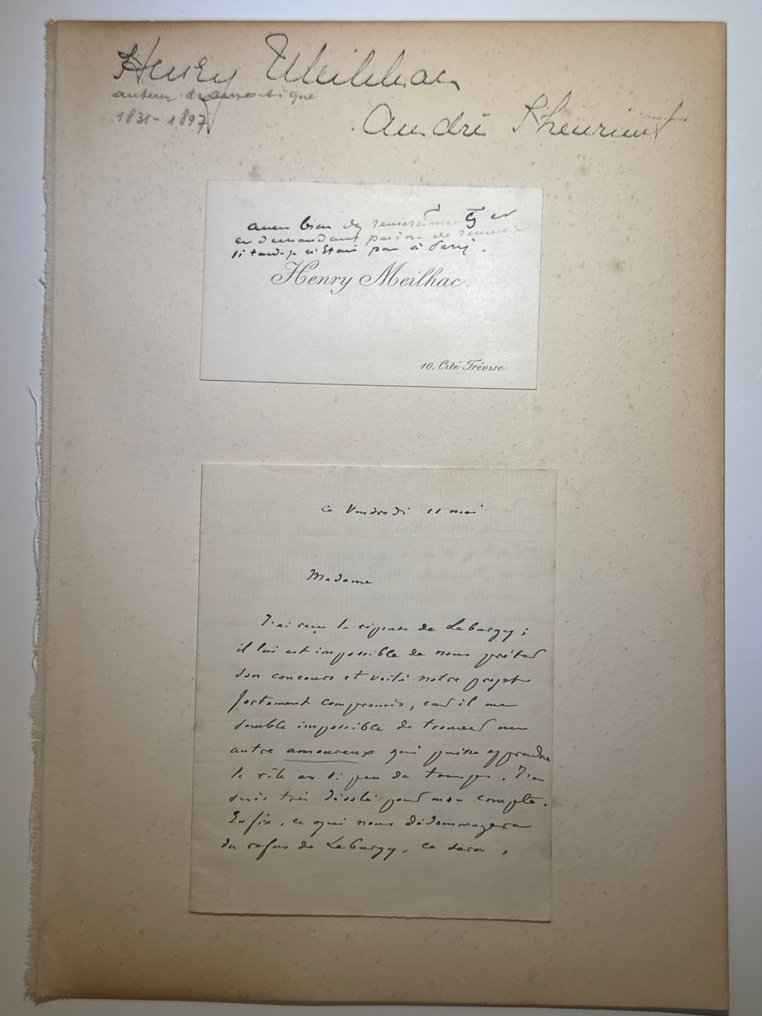 Henry Meilhac
auteur dramatique
1831-1897
André Theuriet
avec bien des remerciements et
en demandant pardon de remercier
si tard. je n'étais pas à Paris.
Henry Meilhac.
10, Cité Trévise.
Ce Vendredi 11 mai
Madame
J'ai reçu la réponse de Lebargy ;
il lui est impossible de nous prêter
son concours et voilà notre projet
fortement compromis, car il me
semble impossible de trouver un
autre amoureux qui puisse apprendre
le rôle en si peu de temps. J'en
suis très désolé pour mon compte.
Enfin, ce qui nous dédommagera
du refus de Lebargy, ce sera,